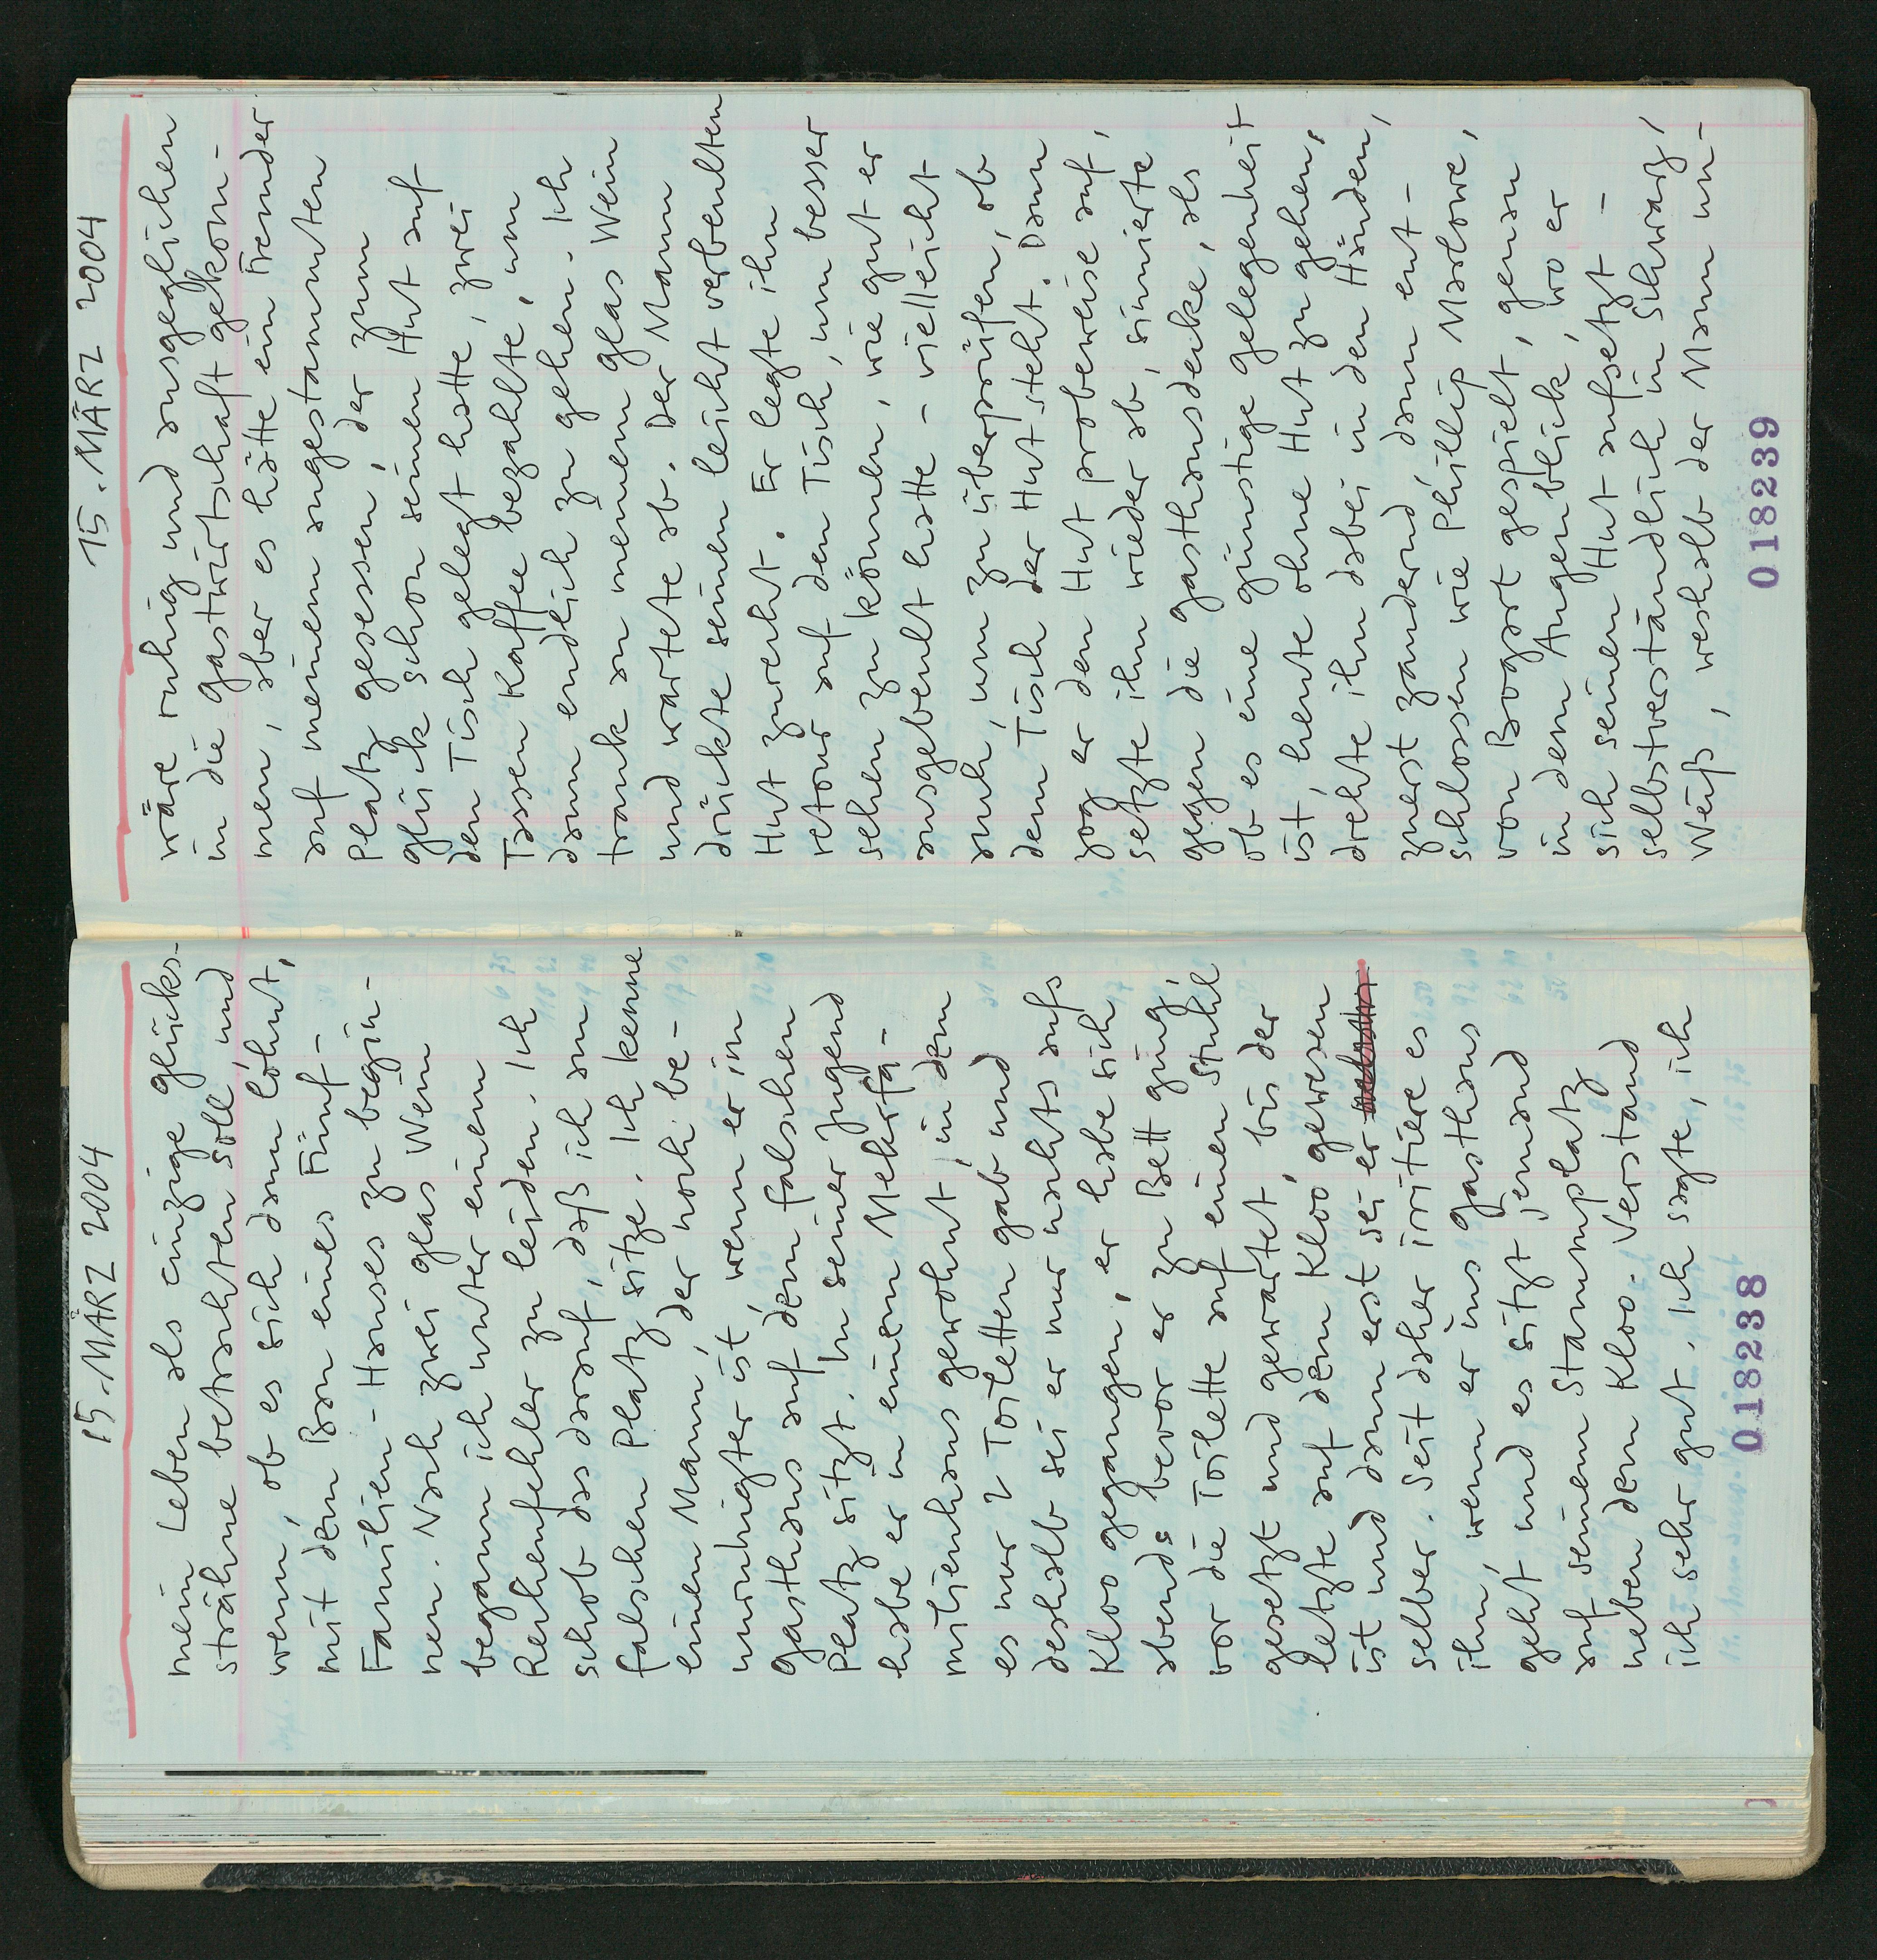 15. MÄRZ 2004
mein Leben als einzige Glücks-
strähne betrachten soll, und
wenn, ob es sich dann lohnt,
mit dem Bau eines Fünf-
Familien-Hauses zu begin-
nen. Nach zwei Glas Wein
begann ich unter einem
Rechenfehler zu leiden. Ich
schob das darauf, daß ich am
falschen Platz sitze. Ich kenne
einen Mann, der noch be-
unruhigter ist, wenn er im
Gasthaus auf dem falschen
Platz sitzt. In seiner Jugend
habe er in einem Mehrfa-
milienhaus gewohnt, in dem
es nur 2 Toiletten gab und
deshalb sei er nur nachts aufs
Kloo gegangen, er habe sich
abends bevor er zu Bett ging,
vor die Toilette auf einen Stuhl
gesetzt und gewartet, bis der
letzte auf dem Kloo gewesen
ist und dann erst sei er
selber. Seit daher irritiere es
ihn, wenn er ins Gasthaus
geht und es sitzt jemand
auf seinem Stammplatz
neben dem Kloo. Verstand
ich sehr gut. Ich sagte, ich
018238
15. MÄRZ 2004
wäre ruhig und ausgeglichen
in die Gastwirtschaft gekom-
men, aber es hätte ein Fremder
auf meinem angestammten
Platz gesessen, der zum
Glück schon seinen Hut auf
den Tisch gelegt hatte, zwei
Tassen Kaffee bezahlte, um
dann endlich zu gehen. Ich
trank an meinem Glas Wein
und wartete ab. Der Mann
drückte seinen leicht verbeulten
Hut zurecht. Er legte ihn
retour auf den Tisch, um besser
sehen zu können, wie gut er
ausgebeult hatte - vielleicht
auch, um zu überprüfen, ob
dem Tisch der Hut steht. Dann
zog er den Hut probeweise auf,
setzte ihn wieder ab, sinnierte
gegen die Gasthausdecke, als
ob es eine günstige Gelegenheit
ist, heute ohne Hut zu gehen,
drehte ihn dabei in den Händen,
zuerst zaudernd, dann ent-
schlossen wie Phillip Marlowe,
von Bogart gespielt, genau
in dem Augenblick, wo er
sich seinen Hut aufsetzt -
selbstverständlich in Schwarz/
Weiß, weshalb der Mann un-
018239